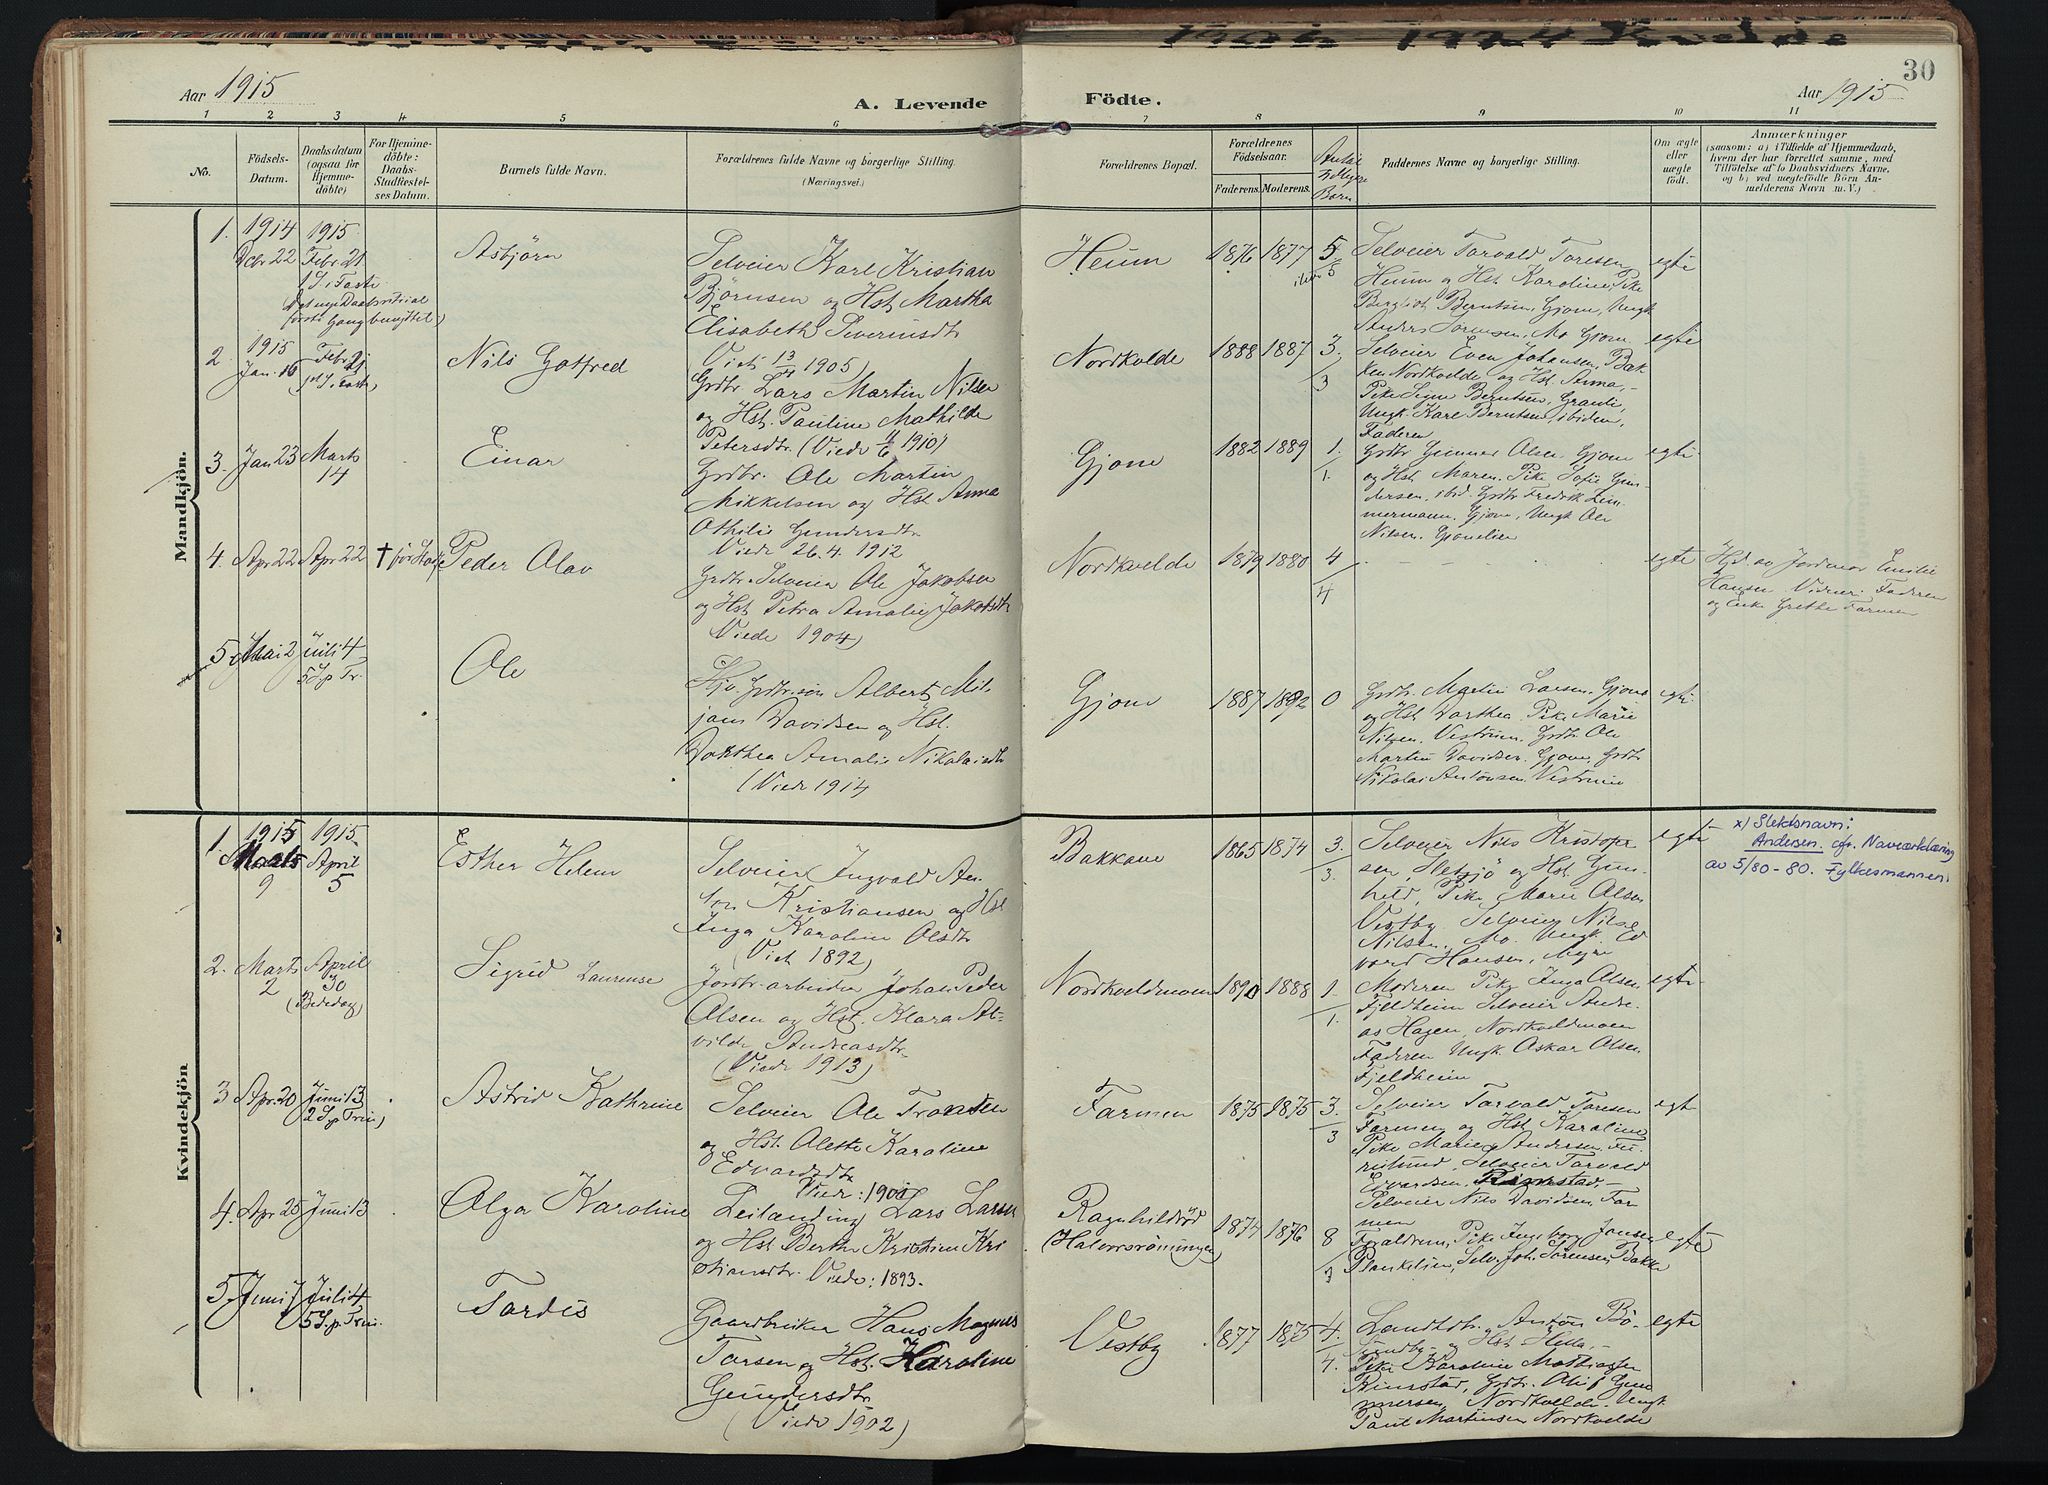 1906 1924 Kvelde
30
Aar 1915
A. Levende
Födte.
Aar 1915
1 2 3 4 5 6 7 8 9 10 11
No.
Födsels-Datum.
Daabsdatum (ogsaa for Hjemme-döbte)
For Hjemme-döbte: Daabs-Stadfæstel-ses Datum.
Barnets fulde Navn.
Forældrenes fulde Navne og borgerlige Stilling.
(Næringsvei.)
Forældrenes Bopæl.
Forældrenes Födselsaar.
Faderens. Moderens.
Faddernes Navne og borgerlige Stilling.
Om ægte eller uægte födt.
Anmærkninger
(saasom: a) i Tilfælde af Hjemmedaab,
hvem der har forrettet samme, med
Tilföielse af to Daabsvidners Navne,
og b) ved uægtefödte Börn An-
melderens Navn m. V.)
Mandkjön.
1. 1914 1915
Decbr 22 Febr. 21
1 S. i Faste
(det nye Daabsritual
förste Gang benyttet)
Asbjørn
Selveier Karl Kristian
Björnsen og Hst Martha
Elisabeth Severinsdt
Viet 13/4 1905)
Heum
1876 1877 5/5
Selveier Torvald Toresen
Heum og Hst Karoline, Pike
Bergliot Berntsen, Gjone, Ungk
Anders Sørensen, Mo Gjone
egte
2. 1915
Jan. 16 Febr 21
1st S. i Faste)
Nils Gotfred
Grdbr. Lars Martin Nilsen
og Hst. Pauline Mathilde
Petersdtr. (Viede 11/6 1910)
Nordkvelde
1888 1887 3/3
Selveier Even Johansen, Bak
ken Nordkvelde og Hst Anna,-
Pike Signe Berntsen, Granli,
Ungk. Karl Berntsen, ibidem,
Faderen
egte
3. Jan 23 Marts 14
Einar
Grdbr. Ole Martin
Mikkelsen og Hst Anna
Othilie Gundersdtr.
Viede 26.4. 1912
Gjone
1882 1889 1/1
Grdbr Gunner Olsen Gjone
og Hst Maren, Pike Sofie Gun-
dersen, ibid. Grdbr Fredrik Zim-
mermann, Gjone, Ungk Ole
Nilsen, Gjonelien
egte
4. Apr 22 Apr 22 † før Stadf
Peder Olav
Grdbr Selveier Ole Jakobsen
og Hst Petra Amalie Jakobsdt
Viede 1904)
Nordkvelde
1879 1880 4/4
egte
Hjd. av Jordmor Emilie
Hansen Vidner: Faderen
og Enke Grethe Farmen
5. Mai 2 Juli 4
5 S p Tr.
Ole
Grdbr.søn Albert Mil-
jam Davidsen og Hst.
Dorthea Amalie Nikolaisdtr
(Viede 1914
Gjone
1887 1892 0
Grdbr. Martin Larsen, Gjone
og Hst Dorthea. Pike Marie
Nilsen, Vestrum. Grdbr Ole
Martin Davidsen Gjone, Grdbr
Nikolai Antonsen Vestrum
egte
Kvindekjön
1. 1915 1915
Marts 9 April 5
Esther Helene
Selveier Ingvald An-
ton Kristiansen og Hst
Inga Karoline Olsdtr
(Viet 1892)
Bakkane
1865 1874 3/3
Selveier Nils Kristofer
sen, Hetsjö og Hst Gun-
hild, Pike Marie Olsen
Vestby. Selveier Nils
Nilsen, Mo. Ungk. Ed
vard Hansen, Myre
egte
x) Slektsnavn:
Andersen. cfr. Navneerklæring
av 5/80-80. Fylkesmannen.
2. Marts 2 April 30
(Bededag)
Sigrid Laurense
Jordbr.arbeider Johan Peder
Olsen og Hst. Klara Al-
vilde Andreasdtr.
(Viede 1913)
Nordkveldmoen
1890 1888 1/1
Moderen Pike Inga Olsen,
Fjeldheim Selveier Andre-
as Hagen, Nordkveldmoen
Faderen Ungk. Oskar Olsen
Fjeldheim
egte
3 Apr. 20 Juni 13
2 S p Trin)
Astrid Kathrine
Selveier Ole Tronsen
og Hst. Olette Karoline
Edvardsdtr
Viede: 1901
Farmen
1875 1875 3/3
Selveier Torvald Toresen
Farmen og Hst Karoline
Pike Marie Andersen
Selveier Torvald
Edvardsen, Rimstad,-
Selveier Nils Davidsen, Far
men
egte
4. Apr 25 Juni 13
Olga Karoline
Leilænding Lars Larsen
og Hst Berthe Kristine Kri
stiansdtr. Viede: 1893.
Ragnhildröd
(Halvorsröningen)
1874 1876 8/7
Forældrene, Pike Ingeborg Jonsen
Plankelien, Selv. Joh. Sørensen Bakke
egte
5. Juni 7 Juli 4
5 S. p. Trin.
Tordis
Gaardbruker Hans Magnus
Torsen og Hst. Karoline
Gundersdtr
(Viede 1902)
Vestby
1877 1875 4/4
Landh. Anton Bö-
Sundby og Hst Hilda,-
Pike Karoline Mathiasen
Rimstad, Grdbr. Oluf Gun
nersen, Nordkvelde. Ungk
Paul Martinsen Nordkvelde
egte